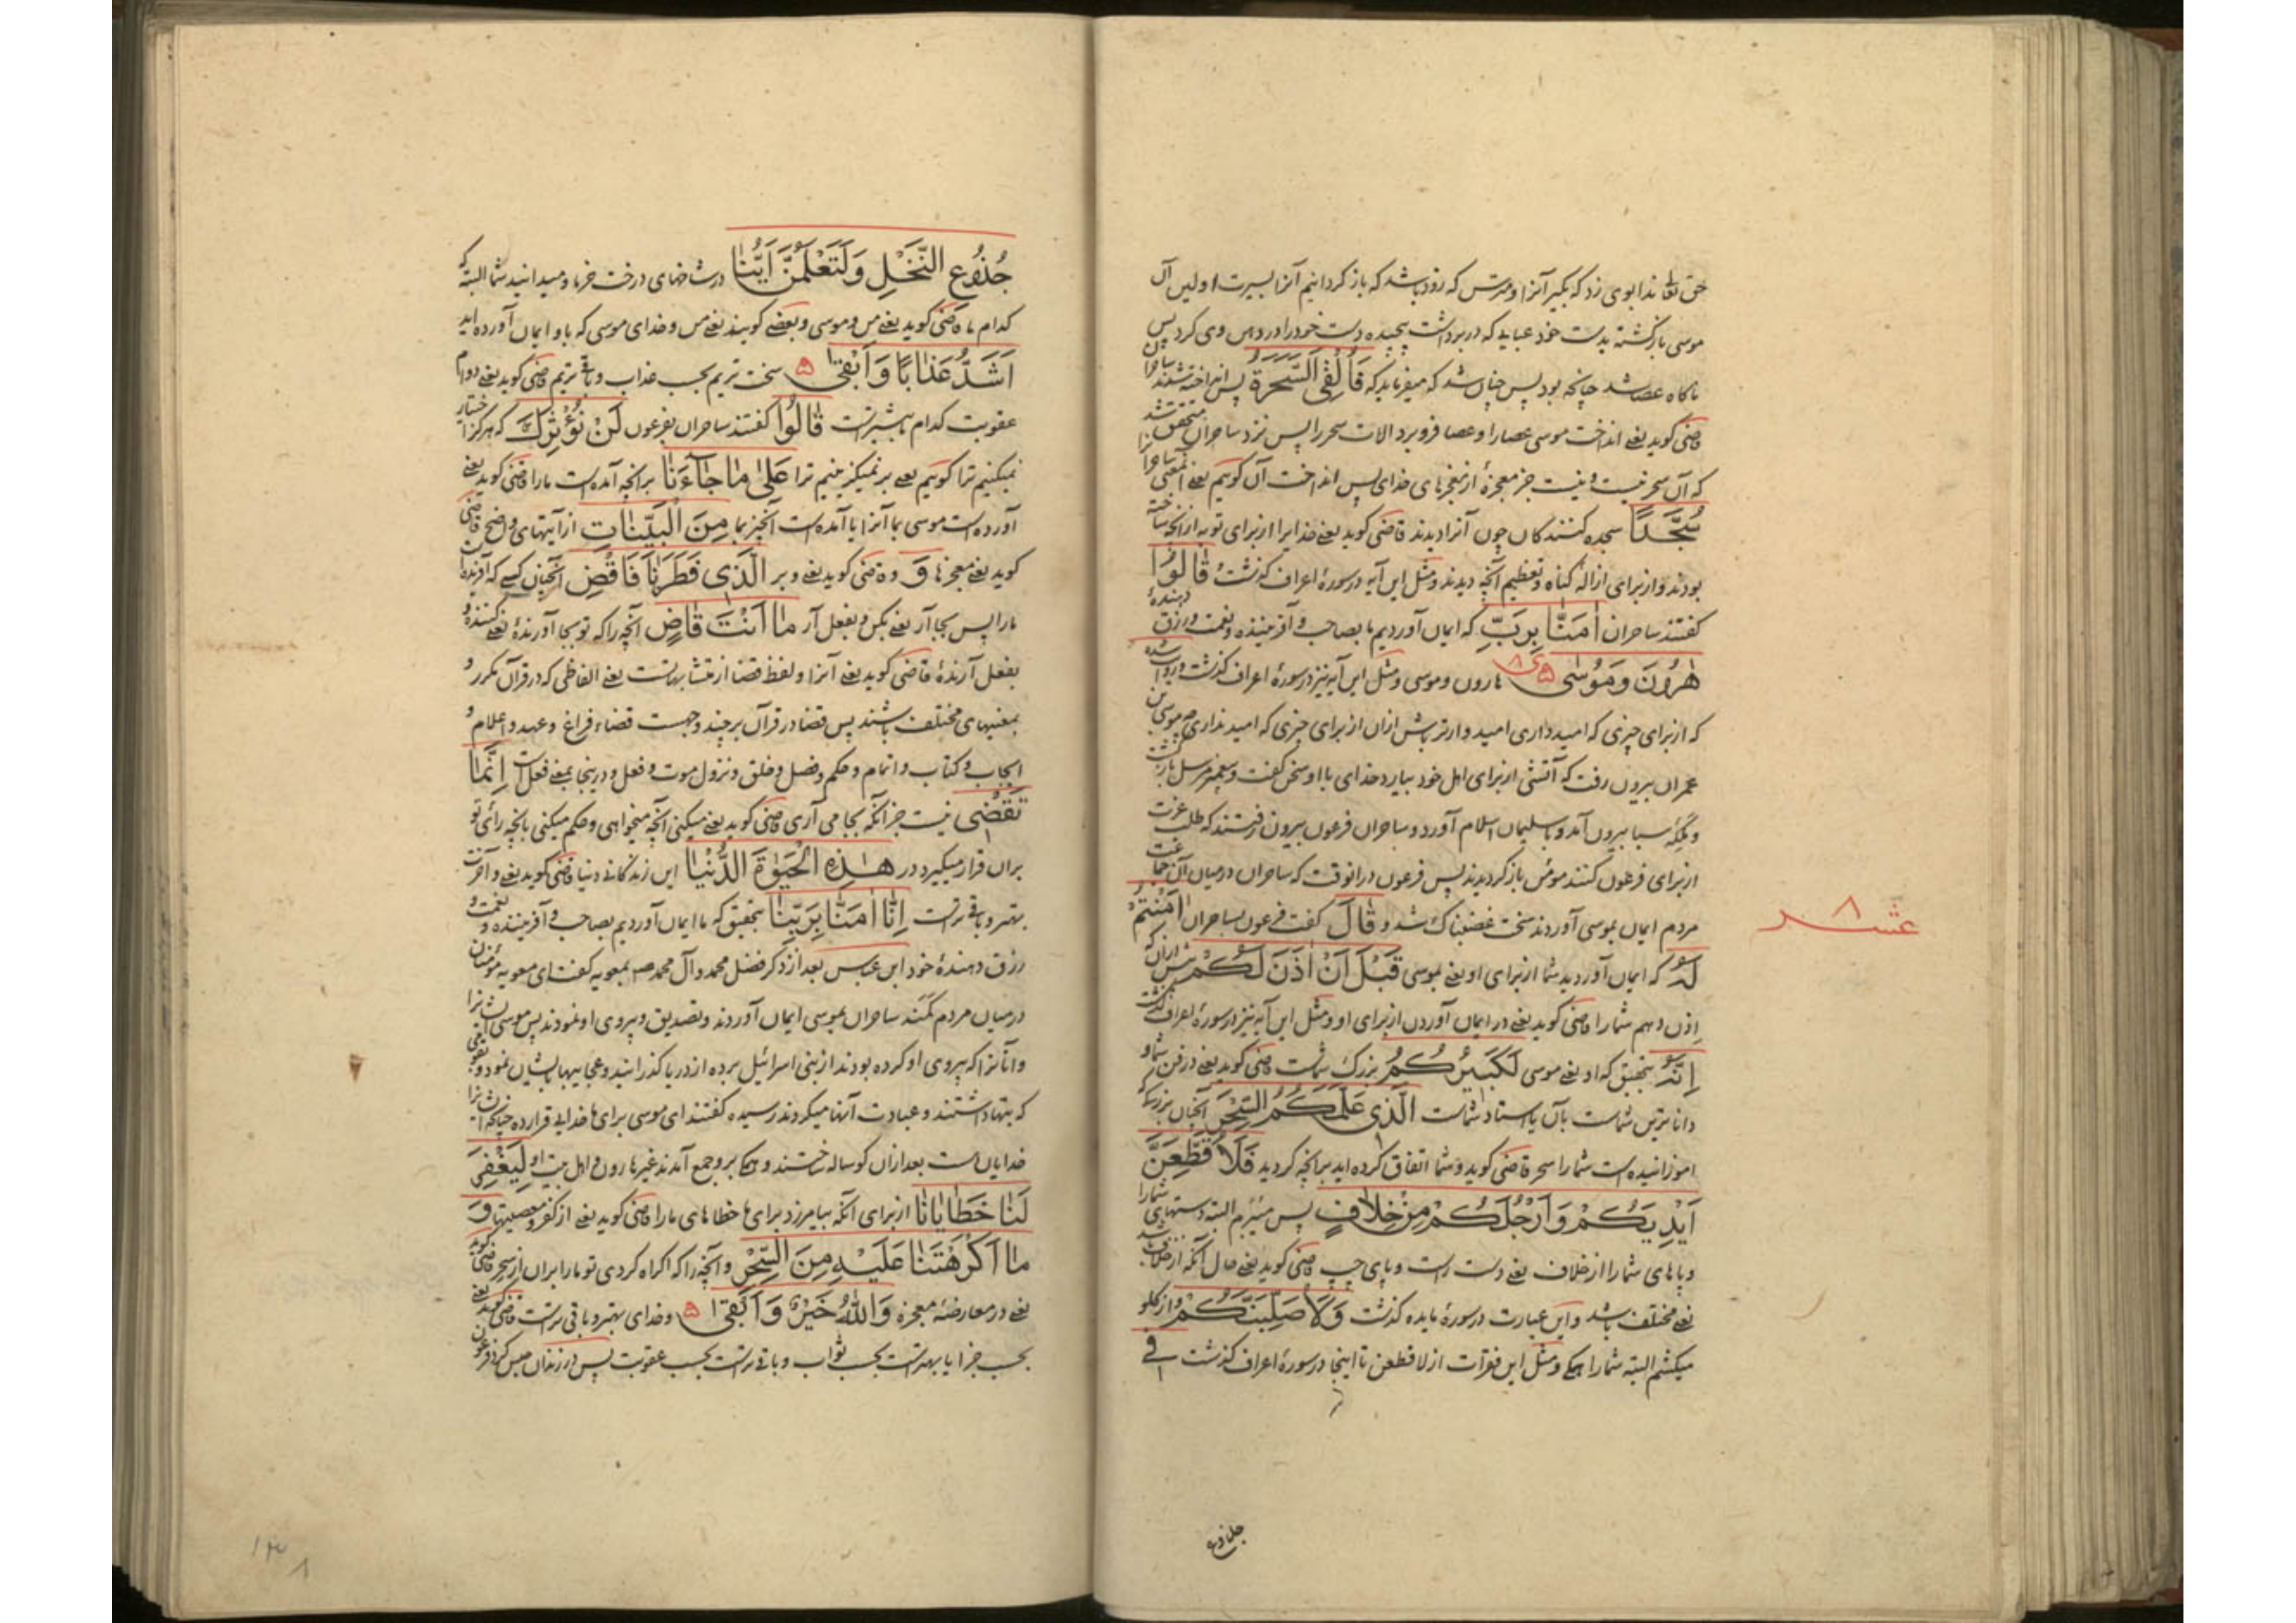 حق تعالی ندا بوی زد که بگیر آنرا و مترس که زود باشد که باز گردانیم آنرا بسیرت اولین آن
موسی بازگشته بدست خود عبایه که در برداشت پیچیده دست خود را در دهن وی کرد پس
ناگاه عصا شد چنانچه بود پس چنان شد که میفرماید که فَأُلْقِیَ السَّحَرَةُ پس انداخته شدند ساحران
قاضی گوید یعنی انداخت موسی عصا را و عصا فرو برد الات سحر را پس نزد ساحران متحقق شد
که آن سحر نیست و نیست جز معجزهٔ از معجزهای خدای پس انداخت آن گوییم یعنی
سُجَّدًا سجده کنندگان چون آنرا دیدند قاضی گوید یعنی خدایرا از برای توبه از آنچه ساخته
بودند و از برای ازالهٔ گناه و تعظیم آنچه دیدند و مثل این آیه در سورهٔ اعراف گذشت قَالُوا
گفتند ساحران اٰمَنَّا بِرَبِّ که ایمان آوردیم ما بصاحب و آفریننده و نعمت و رزق دهندهٔ
هٰرُونَ وَمُوسٰی ۵ ۸ هارون و موسی و مثل این آیه نیز در سورهٔ اعراف گذشت
که از برای چیزی که امید داری امیدوارتر باش ازان از برای چیزی که امید نداری موسی بن
عمران بیرون رفت که آتشی از برای اهل خود بیارد خدای با او سخن گفت و پیغمبر مرسل بازگشت
و ملکهٔ سبا بیرون آمد و با سلیمان اسلام آورد و ساحران فرعون بیرون رفتند که طلب عزت
از برای فرعون کنند مؤمن باز گردیدند پس فرعون در انوقت که ساحران در میان آن جماعت
مردم ایمان بموسی آوردند سخت غضبناک شد و قَالَ گفت فرعون بساحران اٰمَنْتُمْ
لَهُ که ایمان آوردید شما از برای او یعنی بموسی قَبْلَ اَنْ اٰذَنَ لَكُمْ پیش ازان که
اذن دهم شما را قاضی گوید یعنی در ایمان آوردن از برای او و مثل این آیه نیز در سورهٔ اعراف گذشت
اِنَّهُ بتحقیق که او یعنی موسی لَكَبِیرُكُمُ بزرگ شماست قاضی گوید یعنی در فن شما و
داناترین شماست بآن یا استاد شماست الَّذِی عَلَّمَكُمُ السِّحْرَ آنچنان بزرگی که
اموزانیده است شما را سحر قاضی گوید و شما اتفاق کرده اید بر آنچه کردید فَلَاُقَطِّعَنَّ
اَیْدِیَكُمْ وَاَرْجُلَكُمْ مِنْ خِلَافٍ پس میبرم البته دستهای شما را
و پاهای شما را از خلاف یعنی دست راست و پای چپ قاضی گوید یعنی حال آنکه از خلاف باشد
یعنی مختلف باشد و این عبارت در سورهٔ مایده گذشت وَلَاُصَلِّبَنَّكُمْ و از گلو
میکشم البته شما را همگی و مثل این فقرات از لاقطعن تا اینجا در سورهٔ اعراف گذشت فِی
عشر ۸
جُذُوعِ النَّخْلِ وَلَتَعْلَمُنَّ اَیُّنَا در شاخهای درخت خرما و میدانید شما البته که
کدام ما قاضی گوید یعنی من و موسی و بعضی گویند یعنی من و خدای موسی که باو ایمان آورده اید
اَشَدُّ عَذَابًا وَاَبْقٰی ۵ سخت تریم بحسب عذاب و باقی تریم قاضی گوید یعنی دوام
عقوبت کدام بیشتر است قَالُوا گفتند ساحران بفرعون لَنْ نُؤْثِرَكَ که هرگز اختیار
نمیکنیم ترا گوییم یعنی بر نمیگزینیم ترا عَلٰی مَا جَآءَنَا بر انچه آمده است ما را قاضی گوید یعنی
آورده است موسی بما آنرا یا آمده است آنچیز بما مِنَ الْبَیِّنَاتِ از آیتهای واضح قاضی
گوید یعنی معجزها وَ و قاضی گوید یعنی و بر الَّذِی فَطَرَنَا فَاقْضِ آنچنان کسی که آفریده
ما را پس بجا آر یعنی بکن و بفعل آر مَا اَنْتَ قَاضٍ آنچه را که تو بجا آورندهٔ یعنی کنندهٔ و
بفعل آرندهٔ قاضی گوید یعنی آنرا و لفظ قضا از متشابهاتست یعنی الفاظی که در قرآن مکرر و
بمعنیهای مختلف باشند پس قضا در قرآن بر چند وجهست قضاء فراغ و عهد و اعلام و
ایجاب و کتاب و اتمام و حکم و فصل و خلق و نزول موت و فعل و درینجا بمعنی فعلست اِنَّمَا
تَقْضِی نیست جز آنکه بجا می آری قاضی گوید یعنی میکنی آنچه میخواهی و حکم میکنی بانچه رأی تو
بران قرار میگیرد در هٰذِهِ الْحَیٰوةَ الدُّنْیَا این زندگانی دنیا قاضی گوید یعنی و آخرت
بهتر و باقی تر است اِنَّا اٰمَنَّا بِرَبِّنَا بتحقیق که ما ایمان آوردیم بصاحب و آفریننده و نعمت و
رزق دهندهٔ خود ابن عباس بعد از ذکر فضل محمد و آل محمد ص بمعویه گفت ای معویه مؤمنان
در میان مردم کمند ساحران بموسی ایمان آوردند و تصدیق و پیروی او نمودند پس موسی ایشانرا
و آنانرا که پیروی او کرده بودند از بنی اسرائیل برده از دریا گذرانید و عجایبها بایشان نمود و بقومی
که بتها داشتند و عبادت آنها میکردند رسیده گفتند ای موسی برای ما خدایی قرار ده چنانکه ایشانرا
خدایان است بعد ازان گوساله ساختند و همگی برو جمع آمدند غیر هارون و اهل بیت او لِیَغْفِرَ
لَنَا خَطَایَانَا از برای آنکه بیامرزد برای ما خطاهای ما را قاضی گوید یعنی از کفر و معصیتها وَ
مَا اَكْرَهْتَنَا عَلَیْهِ مِنَ السِّحْرِ و آنچه را که اکراه کردی تو ما را بران از سحر قاضی گوید
یعنی در معارضهٔ معجزه وَاللّٰهُ خَیْرٌ وَاَبْقٰی ۵ و خدای بهتر و باقی تر است قاضی گوید یعنی
بحسب جزا یا بهتر است بحسب ثواب و باقی تر است بحسب عقوبت پس در زندان حبس کرد فرعون